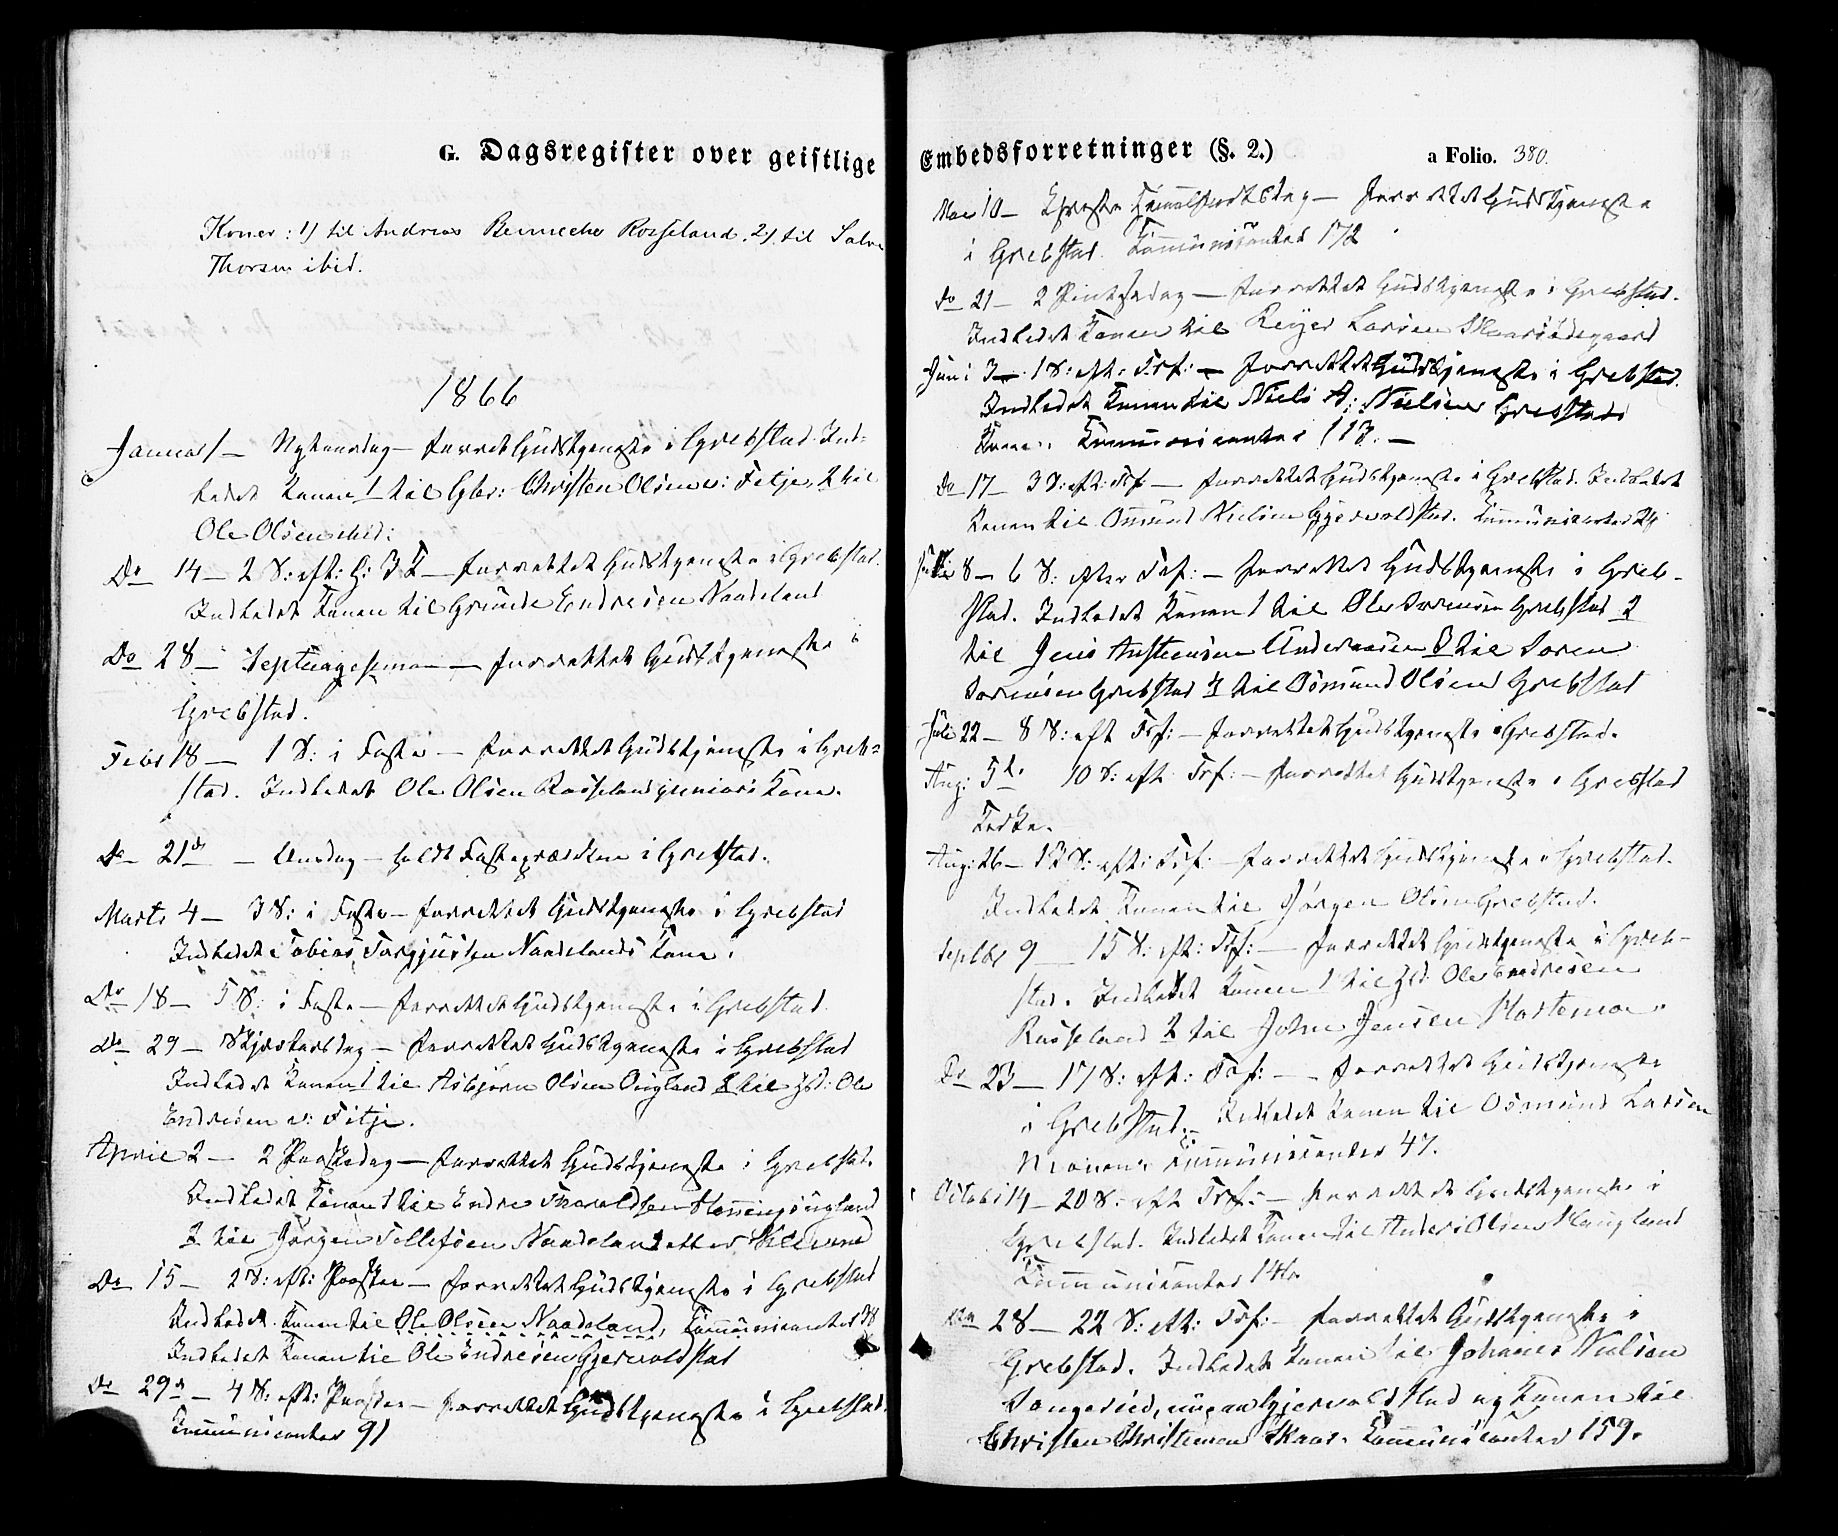 G. Dagsregister over geistlige
Koner: 1) til Andreas Benneche Rosseland. 2) til Salve
Thorsen ibid.
1866
Januar 1 — Nytaarsdag — forret Gudstjeneste i Grebstad. Ind-
ledet Konen 1 til Gbr: Christen Olsen v: Fitje, 2 til
Ole Olsen ibid:
Do 14 — 2 S: eft: H: 3 K — forrettet Gudstjeneste i Grebstad.
Indledet Konen til Grunde Endresen Naadeland
Do 28 — Septuagesima — forrettet Gudstjeneste i
Grebstad.
Febr 18 — 1 S: i Faste — forrettet Gudstjeneste i Greb-
stad. Indledet Ole Olsen Rosseland juniors Kone.
Do 21de — Onsdag — holdt Fasteprædiken i Grebstad.
Marts 4 — 3 S: i Faste — forrettet Gudstjeneste i Grebstad
Indledet Tobias Torgjussen Naadelands Kone.
Do 18 — 5 S: i Faste — forrettet Gudstjeneste i Grebstad.
Do 29 — Skjærtorsdag — forrettet Gudstjeneste i Grebstad
Indledet Konen 1 til Asbjørn Olsen Ougland 2 til Gbr: Ole
Endresen v: Fitje.
April 2 — 2 Paaskedag — forrettet Gudstjeneste i Grebstad.
Indledet Konen 1 til Endre Thoraldsen
2 til Jørgen Tellefsen Naadeland
Do 15 — 2 S: eft: Paaske — forrettet Gudstjeneste i Grebstad
Indledet Konen til Ole Olsen Naadeland, Communicanter
Indledet Konen til Ole Endresen Gjervoldstad
Do 29de — 4 S: eft: Paaske — forrettet Gudstjeneste i Grebstad.
Communicanter 91
Embedsforretninger (§. 2.) a Folio. 380.
Mai 10 — Christi Himmelfartsdag — forrettet Gudstjeneste
i Grebstad. Communicanter 172
Do 21 — 2 Pintsedag — forrettet Gudstjeneste i Grebstad.
Indledet Konen til Reyer Larsen
Juni 3 — 1 S: eft: Trf: — forrettet Gudstjeneste i Grebstad.
Indledet Konen til Niels A: Nielsen Grebstads
Kone. Communicanter 113. —
Do 17 — 3 S: eft: Trf — forrettet Gudstjeneste i Grebstad. Indledet
Konen til Osmund Nielsen Gjervoldstad. Communicanter
Juli 8 — 6 S: efter Trf: — forrettet Gudstjeneste i Greb-
stad. Indledet Konen 1 til Ole Sorensen Grebstad 2
til Jens Austensen Underaasen 3 til Soren
Sorensen Grebstad 4 til Osmund Olsen Grebstad
Juli 22 — 8 S: eft Trf: — forrettet Gudstjeneste i Grebstad.
Aug: 5te 10 S: eft: Trf: — forrettet Gudstjeneste i Grebstad
Kirke.
Aug: 26 — 13 S: eft: Trf: — forrettet Gudstjeneste i Grebstad.
Indledet Konen til Jørgen Olsen Grebstad.
Septbr 9 — 15 S: eft: Trf: — forrettet Gudstjeneste i Greb-
stad. Indledet Konen 1 til Gbr Ole Endresen
Rosseland 2 til John Jensen
Do 23 — 17 S: eft: Trf: — forrettet Gudstjeneste
i Grebstad. — Indledet Konen til Osmund Larsen
Communicanter 47.
October 14 — 20 S: eft Trf: — forrettet Gudstjeneste i
Grebstad. Indledet Konen til Anders Olsen Haugland
Communicanter
Do 28 — 22 S: eft: Trf: — forrettet Gudstjeneste i
Grebstad. Indledet Konen til Johanes Nielsen
Gjervoldstad og Konen til
Christen Christensen Skaar. Communicanter 159.